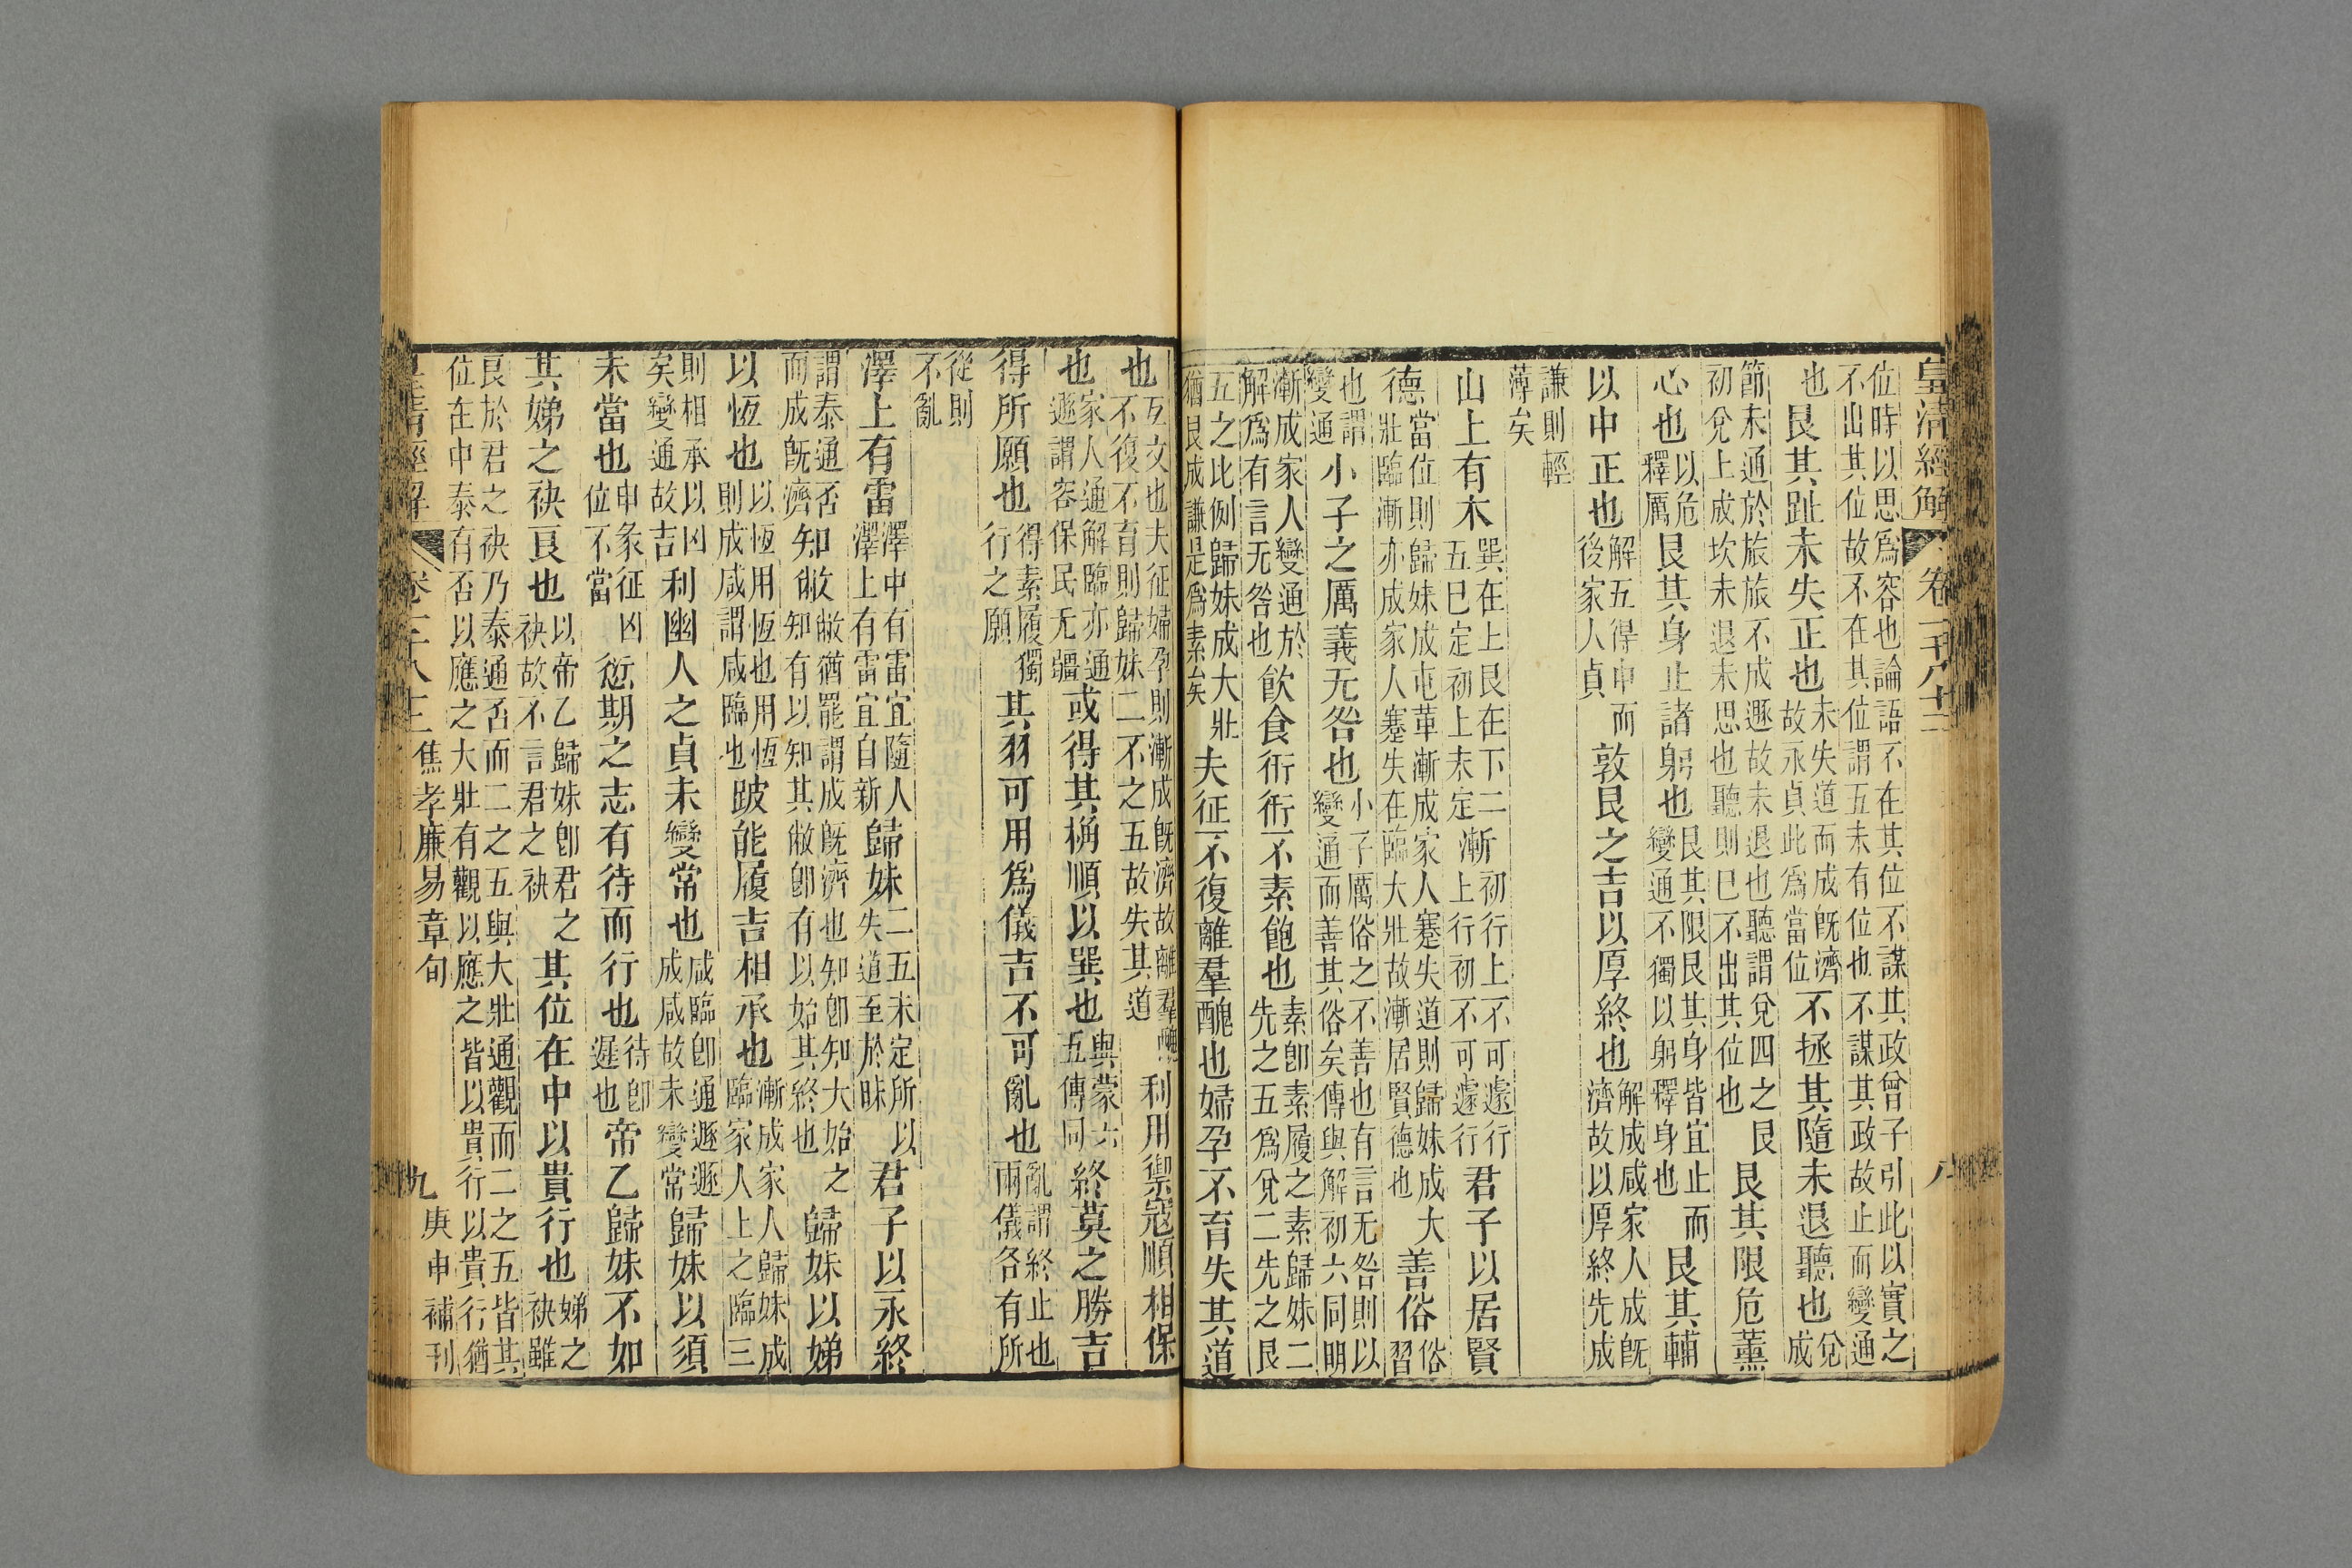 皇清經解 卷一千八十三 八
位時以思爲容也論語不在其位不謀其政曾子引此以實之
不出其位故不在其位謂五未有位也不謀其政故止而變通
也艮其趾未失正也未失道而成旣濟故永貞此爲當位不拯其隨未退聽也兌成
節未通於旅旅不成遯故未退也聽謂兌四之艮初兌上成坎未退未思也聽則巳不出其位也艮其限危薰
心也以危釋厲艮其身止諸躬也艮其限艮其身皆宜止而變通不獨以躬釋身也艮其輔
以中正也解五得申而後家人貞敦艮之吉以厚終也解成咸家人成旣濟故以厚終先成
謙則輕薄矣
山上有木巽在上艮在下二五巳定初上未定漸初行上不可遽行上行初不可遽行君子以居賢
德當位則歸妹成屯革漸成家人蹇失道則歸妹成大壯臨漸亦成家人蹇失在臨大壯故漸居賢德也善俗俗習
也謂變通小子之厲義无咎也小子厲俗之不善也有言无咎則以變通而善其俗矣傳與解初六同明
漸成家人變通於解爲有言无咎也飲食衎衎不素飽也素卽素履之素歸妹二先之五爲兌二先之艮
五之比例歸妹成大壯猶艮成謙是爲素厶矣夫征不復離羣醜也婦孕不育失其道
也互文也夫征婦孕則漸成旣濟故離羣醜不復不育則歸妹二不之五故失其道利用禦寇順相保
也家人通解臨亦通遯謂容保民无疆或得其桷順以巽也與蒙六五傳同終莫之勝吉
得所願也得素履獨行之願其羽可用爲儀吉不可亂也亂謂終止也兩儀各有所
從則不亂
澤上有雷澤中有雷宜隨人澤上有雷宜自新歸妹二五未定所以失道至於昧君子以永終
謂泰通否而成旣濟知敝敝猶罷謂成旣濟也知卽知大始之知有以知其敝卽有以始其終也歸妹以娣
以恆也以恆用恆也用恆則成咸謂咸臨也跛能履吉相承也漸成家人歸妹成臨家人上之臨三
則相承以凶矣變通故吉利幽人之貞未變常也咸臨卽通遯遯成咸故未變常歸妹以須
未當也申彖征凶位不當愆期之志有待而行也待卽遲也帝乙歸妹不如
其娣之袂良也以帝乙歸妹卽君之袂故不言君之袂其位在中以貴行也娣之袂雖
良於君之袂乃泰通否而二之五與大壯通觀而二之五皆其
位在中泰有否以應之大壯有觀以應之皆以貴行以貴行猶
皇清經解 卷一千八十三 焦孝廉易章句 九 庚申補刊